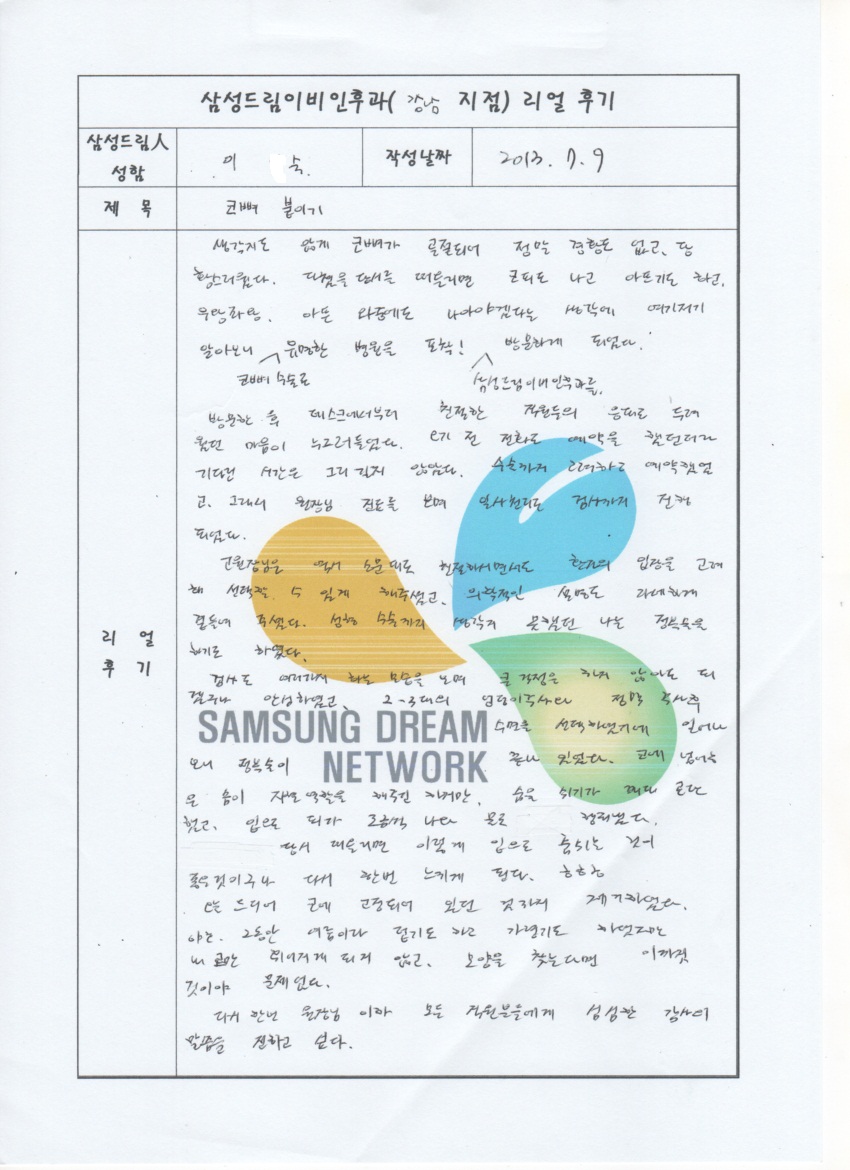 삼성드림이비인후과( 강남 지점) 리얼 후기
삼성드림人
성함
이 숙
작성날짜
2013. 7. 9
제 목
코뼈 붙이기
리 얼
후 기
생각지도 않게 코뼈가 골절되어 정말 경황도 없고, 당
황스러웠다. 다쳤을 당시를 떠올리면 코피도 나고 아프기도 하고,
우왕좌왕. 아픈 와중에도 나아야겠다는 생각에 여기저기
알아보니 유명한 병원을 포착! 방문하게 되었다.
코뼈 수술로
삼성드림이비인후과를
방문한 후 데스크에서부터 친절한 직원들의 응대로 두려
웠던 마음이 누그러들었다. 오기 전 전화로 예약을 했던터라
기다린 시간은 그리 길지 않았다. 수술까지 고려하고 예약했었
고, 그래서 원장님 진료를 보며 일사천리로 검사까지 진행
되었다.
고원장님은 역시 소문대로 친절하시면서도 환자의 입장을 고려
해 선택할 수 있게 해주셨고, 의학적인 설명도 자세하게
곁들여 주셨다. 성형 수술까지 생각지 못했던 나는 정복술을
하기로 하였다.
검사도 여러가지 하는 모습을 보며 큰 걱정은 하지 않아도 되
겠구나 안심하였고, 2-3대의 엉덩이주사와 정맥 주사후
SAMSUNG DREAM
NETWORK
수면을 선택하였기에 일어나
보니 정복술이 끝나 있었다. 코에 넣어놓
은 솜이 지지 역할을 해주긴 하지만, 숨을 쉬기가 매우 곤란
했고, 입으로 피가 조금씩 나와 물로
당시 떠올리면 이렇게 입으로 숨쉬는 것이
좋은것이구나 다시 한번 느끼게 된다. 하하하
오늘 드디어 코에 고정되어 있던 것까지 제거하였다.
야호. 그동안 여름이라 덥기도 하고 가렵기도 하였지만
내 코만 휘어지게 되지 않고, 모양을 찾는다면 이까짓
것이야 문제없다.
다시 한번 원장님 이하 모든 직원분들에게 심심한 감사의
말씀을 전하고 싶다.